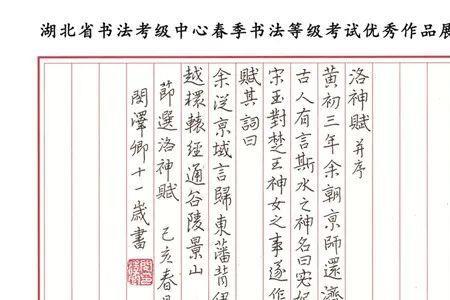 湖北省书法考级中心春季书法等级考试优秀作品展
洛神賦 并序
黄初三年余朝京師還濟
古人有言斯水之神名曰宓妃
宋玉對楚王神女之事遂作
賦其詞曰
余從京域言歸東藩背伊
越轘轅經通谷陵景山
節選洛神賦 己亥春月
閔澤卿十一歲書